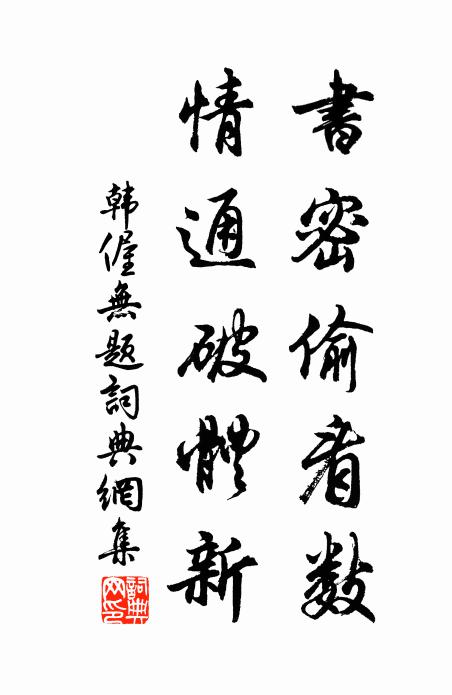 書密偷看數
情通破體新
韓偓無題詞典網集
詞典網印